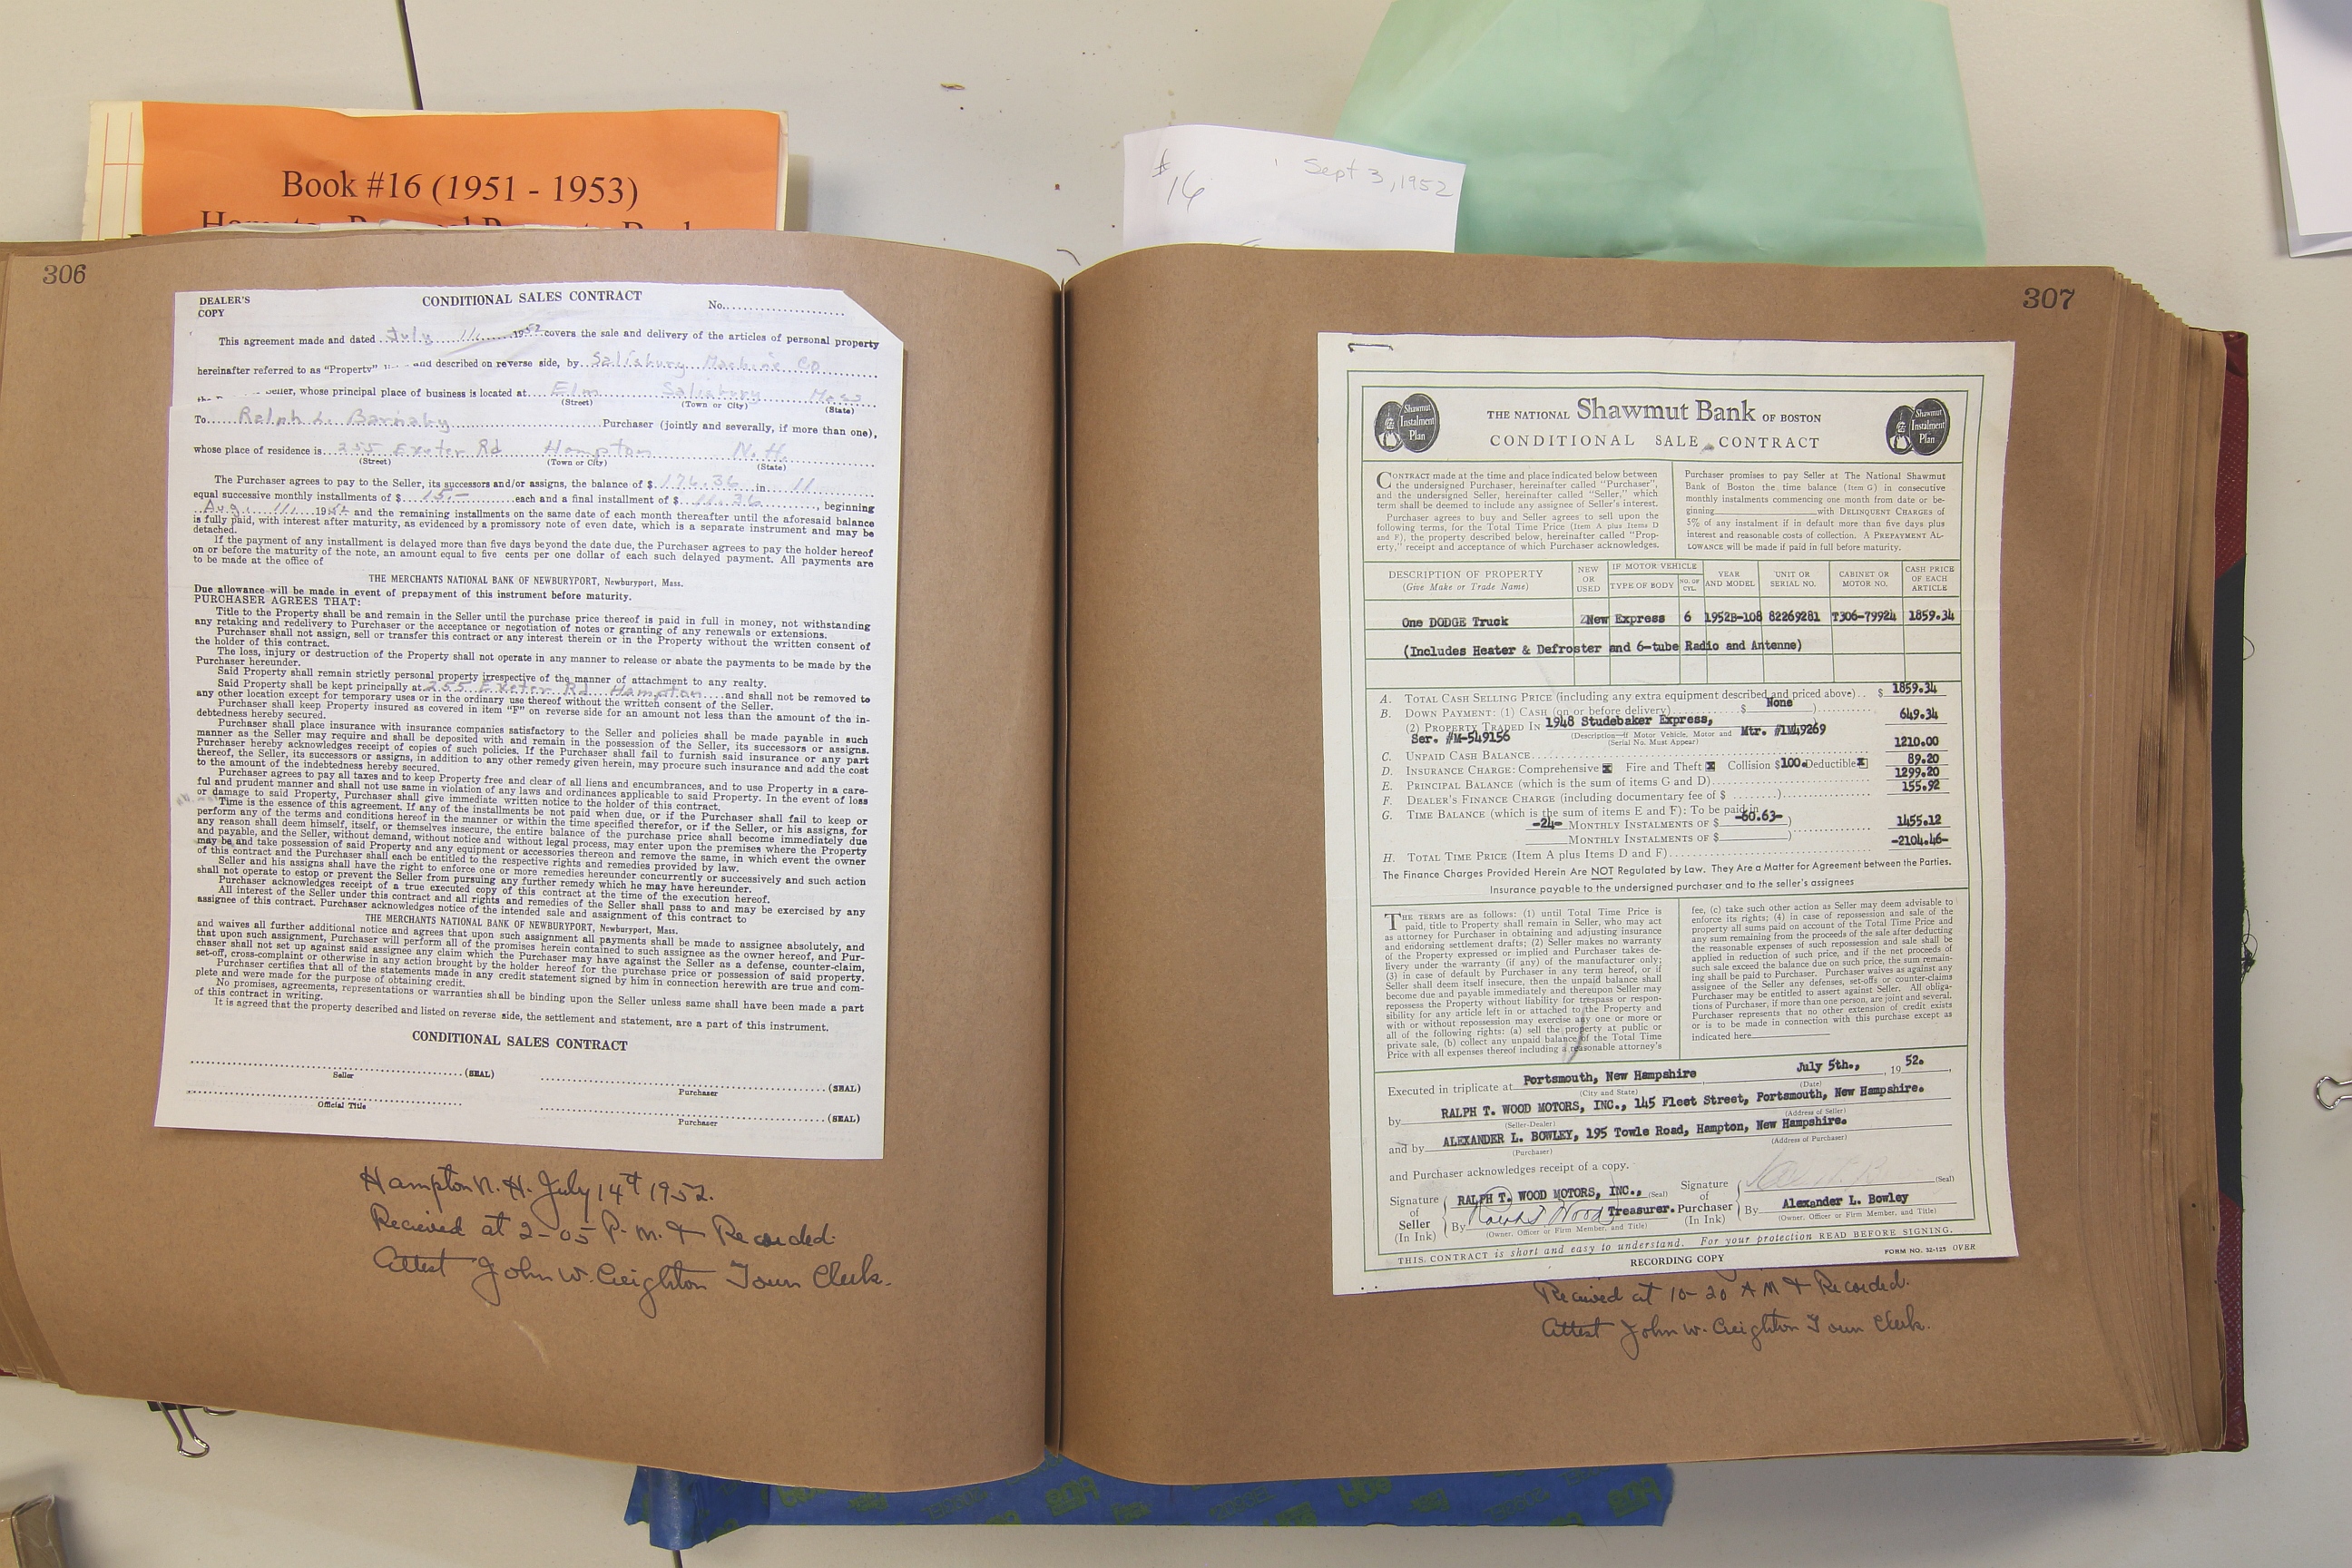 Book #16 (1951 - 1953)
# 16 Sept 3, 1952
306
DEALER'S
COPY
CONDITIONAL SALES CONTRACT
No.
This agreement made and dated July 11 1952 covers the sale and delivery of the articles of personal property
hereinafter referred to as "Property" and described on reverse side, by Salisbury Machine Co
Seller, whose principal place of business is located at Elm Salisbury Mass
(Street) (Town or City) (State)
To Ralph L. Barnaby Purchaser (jointly and severally, if more than one),
whose place of residence is 255 Exeter Rd Hampton N.H.
(Street) (Town or City) (State)
The Purchaser agrees to pay to the Seller, its successors and/or assigns, the balance of $ 176.36 in 11
equal successive monthly installments of $ 15.- each and a final installment of $ 11.36, beginning
Aug. 11 1952 and the remaining installments on the same date of each month thereafter until the aforesaid balance
is fully paid, with interest after maturity, as evidenced by a promissory note of even date, which is a separate instrument and may be
detached.
If the payment of any installment is delayed more than five days beyond the date due, the Purchaser agrees to pay the holder hereof
on or before the maturity of the note, an amount equal to five cents per one dollar of each such delayed payment. All payments are
to be made at the office of
THE MERCHANTS NATIONAL BANK OF NEWBURYPORT, Newburyport, Mass.
Due allowance will be made in event of prepayment of this instrument before maturity.
PURCHASER AGREES THAT:
Title to the Property shall be and remain in the Seller until the purchase price thereof is paid in full in money, not withstanding
any retaking and redelivery to Purchaser or the acceptance or negotiation of notes or granting of any renewals or extensions.
Purchaser shall not assign, sell or transfer this contract or any interest therein or in the Property without the written consent of
the holder of this contract.
The loss, injury or destruction of the Property shall not operate in any manner to release or abate the payments to be made by the
Purchaser hereunder.
Said Property shall remain strictly personal property irrespective of the manner of attachment to any realty.
Said Property shall be kept principally at 255 Exeter Rd Hampton and shall not be removed to
any other location except for temporary uses or in the ordinary use thereof without the written consent of the Seller.
Purchaser shall keep Property insured as covered in item "F" on reverse side for an amount not less than the amount of the in-
debtedness hereby secured.
Purchaser shall place insurance with insurance companies satisfactory to the Seller and policies shall be made payable in such
manner as the Seller may require and shall be deposited with and remain in the possession of the Seller, its successors or assigns.
Purchaser hereby acknowledges receipt of copies of such policies. If the Purchaser shall fail to furnish said insurance or any part
thereof, the Seller, its successors or assigns, in addition to any other remedy given herein, may procure such insurance and add the cost
to the amount of the indebtedness hereby secured.
Purchaser agrees to pay all taxes and to keep Property free and clear of all liens and encumbrances, and to use Property in a care-
ful and prudent manner and shall not use same in violation of any laws and ordinances applicable to said Property. In the event of loss
or damage to said Property, Purchaser shall give immediate written notice to the holder of this contract.
Time is the essence of this agreement. If any of the installments be not paid when due, or if the Purchaser shall fail to keep or
perform any of the terms and conditions hereof in the manner or within the time specified therefor, or if the Seller, or his assigns, for
any reason shall deem himself, itself, or themselves insecure, the entire balance of the purchase price shall become immediately due
and payable, and the Seller, without demand, without notice and without legal process, may enter upon the premises where the Property
may be and take possession of said Property and any equipment or accessories thereon and remove the same, in which event the owner
of this contract and the Purchaser shall each be entitled to the respective rights and remedies provided by law.
Seller and his assigns shall have the right to enforce one or more remedies hereunder concurrently or successively and such action
shall not operate to estop or prevent the Seller from pursuing any further remedy which he may have hereunder.
Purchaser acknowledges receipt of a true executed copy of this contract at the time of the execution hereof.
All interest of the Seller under this contract and all rights and remedies of the Seller shall pass to and may be exercised by any
assignee of this contract. Purchaser acknowledges notice of the intended sale and assignment of this contract to
THE MERCHANTS NATIONAL BANK OF NEWBURYPORT, Newburyport, Mass.
and waives all further additional notice and agrees that upon such assignment all payments shall be made to assignee absolutely, and
that upon such assignment, Purchaser will perform all of the promises herein contained to such assignee as the owner hereof, and Pur-
chaser shall not set up against said assignee any claim which the Purchaser may have against the Seller as a defense, counter-claim,
set-off, cross-complaint or otherwise in any action brought by the holder hereof for the purchase price or possession of said property.
Purchaser certifies that all of the statements made in any credit statement signed by him in connection herewith are true and com-
plete and were made for the purpose of obtaining credit.
No promises, agreements, representations or warranties shall be binding upon the Seller unless same shall have been made a part
of this contract in writing.
It is agreed that the property described and listed on reverse side, the settlement and statement, are a part of this instrument.
CONDITIONAL SALES CONTRACT
(SEAL) (SEAL)
Seller Purchaser
(SEAL)
Official Title Purchaser
Hampton N. H. July 14th 1952.
Recieved at 2-05 P. M. & Recorded.
Attest John W. Creighton Town Clerk.
307
Shawmut Instalment Plan
THE NATIONAL Shawmut Bank OF BOSTON
Shawmut Instalment Plan
CONDITIONAL SALE CONTRACT
CONTRACT made at the time and place indicated below between
the undersigned Purchaser, hereinafter called "Purchaser",
and the undersigned Seller, hereinafter called "Seller," which
term shall be deemed to include any assignee of Seller's interest.
Purchaser agrees to buy and Seller agrees to sell upon the
following terms, for the Total Time Price (Item A plus Items D
and F), the property described below, hereinafter called "Prop-
erty," receipt and acceptance of which Purchaser acknowledges.
Purchaser promises to pay Seller at The National Shawmut
Bank of Boston the time balance (Item G) in consecutive
monthly instalments commencing one month from date or be-
ginning with DELINQUENT CHARGES of
5% of any instalment if in default more than five days plus
interest and reasonable costs of collection. A PREPAYMENT AL-
LOWANCE will be made if paid in full before maturity.
DESCRIPTION OF PROPERTY
(Give Make or Trade Name)
NEW OR USED
IF MOTOR VEHICLE
TYPE OF BODY NO. OF CYL.
YEAR AND MODEL
UNIT OR SERIAL NO.
CABINET OR MOTOR NO.
CASH PRICE OF EACH ARTICLE
One DODGE Truck New Express 6 1952B-108 82269281 T306-79924 1859.34
(Includes Heater & Defroster and 6-tube Radio and Antenne)
A. TOTAL CASH SELLING PRICE (including any extra equipment described and priced above) $ 1859.34
B. DOWN PAYMENT: (1) CASH (on or before delivery) $ None )
(2) PROPERTY TRADED IN 1948 Studebaker Express, 649.34
Ser. #M-549156 (Description—If Motor Vehicle, Motor and Serial No. Must Appear) Mtr. #1M49269
C. UNPAID CASH BALANCE 1210.00
D. INSURANCE CHARGE: Comprehensive x Fire and Theft x Collision $100. Deductible x 89.20
E. PRINCIPAL BALANCE (which is the sum of items G and D) 1299.20
F. DEALER'S FINANCE CHARGE (including documentary fee of $ ) 155.92
G. TIME BALANCE (which is the sum of items E and F): To be paid in
-24- MONTHLY INSTALMENTS OF $ -60.63- ) 1455.12
MONTHLY INSTALMENTS OF $ )
H. TOTAL TIME PRICE (Item A plus Items D and F) -2104.46-
The Finance Charges Provided Herein Are NOT Regulated by Law. They Are a Matter for Agreement between the Parties.
Insurance payable to the undersigned purchaser and to the seller's assignees
THE TERMS are as follows: (1) until Total Time Price is
paid, title to Property shall remain in Seller, who may act
as attorney for Purchaser in obtaining and adjusting insurance
and endorsing settlement drafts; (2) Seller makes no warranty
of the Property expressed or implied and Purchaser takes de-
livery under the warranty (if any) of the manufacturer only;
(3) in case of default by Purchaser in any term hereof, or if
Seller shall deem itself insecure, then the unpaid balance shall
become due and payable immediately and thereupon Seller may
repossess the Property without liability for trespass or respon-
sibility for any article left in or attached to the Property and
with or without repossession may exercise any one or more or
all of the following rights: (a) sell the property at public or
private sale, (b) collect any unpaid balance of the Total Time
Price with all expenses thereof including a reasonable attorney's
fee, (c) take such other action as Seller may deem advisable to
enforce its rights; (4) in case of repossession and sale of the
property all sums paid on account of the Total Time Price and
any sum remaining from the proceeds of the sale after deducting
the reasonable expenses of such repossession and sale shall be
applied in reduction of such price, and if the net proceeds of
such sale exceed the balance due on such price, the sum remain-
ing shall be paid to Purchaser. Purchaser waives as against any
assignee of the Seller any defenses, set-offs or counter-claims
Purchaser may be entitled to assert against Seller. All obliga-
tions of Purchaser, if more than one person, are joint and several.
Purchaser represents that no other extension of credit exists
or is to be made in connection with this purchase except as
indicated here
Executed in triplicate at Portsmouth, New Hampshire July 5th., 19 52.
(City and State) (Date)
by RALPH T. WOOD MOTORS, INC., 145 Fleet Street, Portsmouth, New Hampshire.
(Seller-Dealer) (Address of Seller)
and by ALEXANDER L. BOWLEY, 195 Towle Road, Hampton, New Hampshire.
(Purchaser) (Address of Purchaser)
and Purchaser acknowledges receipt of a copy.
Signature of Seller (In Ink) RALPH T. WOOD MOTORS, INC., (Seal)
By Ralph T. Wood Treasurer.
(Owner, Officer or Firm Member, and Title)
Signature of Purchaser (In Ink) (Seal)
By Alexander L. Bowley
(Owner, Officer or Firm Member, and Title)
THIS CONTRACT is short and easy to understand. For your protection READ BEFORE SIGNING.
RECORDING COPY FORM NO. 32-125 OVER
Recieved at 10-20 AM & Recorded.
Attest John W. Creighton Town Clerk.